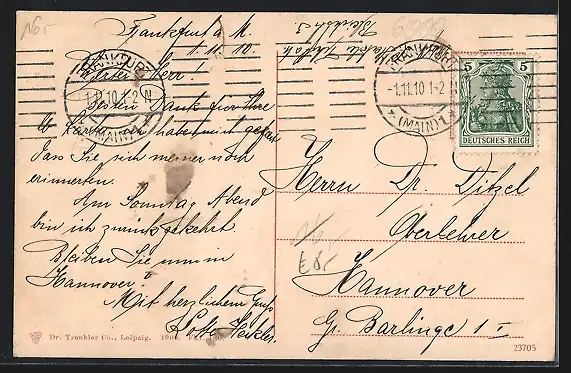 Frankfurt a M
1.11.10.
Werter Herr!
Besten Dank für Ihre
lb Karte. Es hat mich gefreut
dass Sie sich meiner noch
erinnerten.
Am Sonntag Abend
bin ich zurück gekehrt.
Bleiben Sie nun in
Hannover?
Mit herzlichem Gruß
FRANKFURT
1.11.10 1-2 N
(MAIN)
FRANKFURT
-1.11.10 1-2
* (MAIN) 1. *
5 5
DEUTSCHES REICH
Herrn Dr. Ditzel
Oberlehrer
Hannover
Gr. Barlinge 1 I
Dr. Trenkler Co., Leipzig.
23705